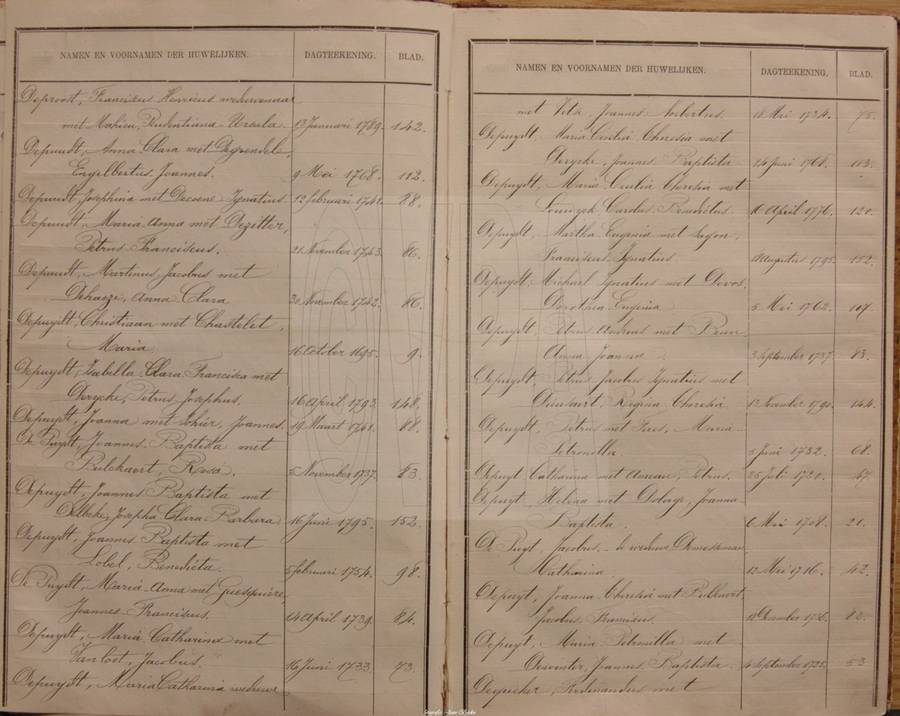 NAMEN EN VOORNAMEN DER HUWELIJKEN. DAGTEEKENING. BLAD.
Deproost, Franciscus Henricus weduwenaar
met Mahieu, Prudentiana Ursula. 13 Januari 1789. 142.
Depuudt, Anna Clara met Degrendele,
Engelbertus Joannes. 9 Mei 1768. 112.
Depuudt, Josephina met Decoene Ignatius. 12 februari 1742. 88.
Depuudt, Maria Anna met Dezitter,
Petrus Franciscus. 21 November 1743. 86.
Depuudt, Martinus, Jacobus met
Dehaeze, Anna Clara 30 November 1742. 86.
Depuydt, Christiaan met Chastelet,
Maria 16 October 1695. 9.
Depuydt, Isabella Clara Francisca met
Derycke, Petrus Josephus. 16 April 1793. 148.
Depuydt, Joanna met Lohier, Joannes. 19 Maart 1741. 88.
De Puydt, Joannes Baptista met
Bulckaert, Rosa. 5 November 1737. 83.
Depuydt, Joannes Baptista met
Josepha Clara Barbara 16 Juni 1795. 152.
Depuydt, Joannes Baptista met
Lobel, Benedicta. 5 februari 1754. 98.
De Puydt, Maria Anna met Guesquiere,
Joannes Franciscus. 14 April 1739. 84.
Depuydt, Maria Catharina met
Vanloot, Jacobus. 16 Juni 1733 73.
Depuydt, Maria Catharina weduwe
NAMEN EN VOORNAMEN DER HUWELIJKEN. DAGTEEKENING. BLAD.
met Joannes Norbertus. 18 Mei 1734. 75.
Depuydt, Maria Cecilia Theresia met
Derycke, Joannes Baptista 14 Juni 1768. 113.
Depuydt, Maria Cecilia Theresia met
Carolus Benedictus. 16 April 1776. 120.
Depuydt, Martha Eugenia met
Franciscus Ignatius Augustus 1795. 152.
Depuydt, Michael Ignatius met Devos,
Dorothea Eugenia 5 Mei 1762. 107.
Depuydt Petrus Andreas met
Anna Joanna 3 September 1737. 83.
Depuydt, Petrus Jacobus Ignatius met
Regina Theresia 13 November 1790. 144.
Depuydt, Petrus met Maria
Petronilla 5 Juni 1732. 68.
Depuyt Catharina met Petrus. 25 Juli 1720. 47.
Depuyt, Helena met Joanna
Baptista. 6 Mei 1708. 21.
De Puyt, Jacobus, de weduwe
Catharina. 12 Mei 1716. 42.
Depuyt, Joanna Theresia met Bulckaert,
Jacobus Franciscus. 82.
Depuyt, Maria Petronilla met
Joannes Baptista. 4 September 1725. 53.
Depucker, Ferdinandus met